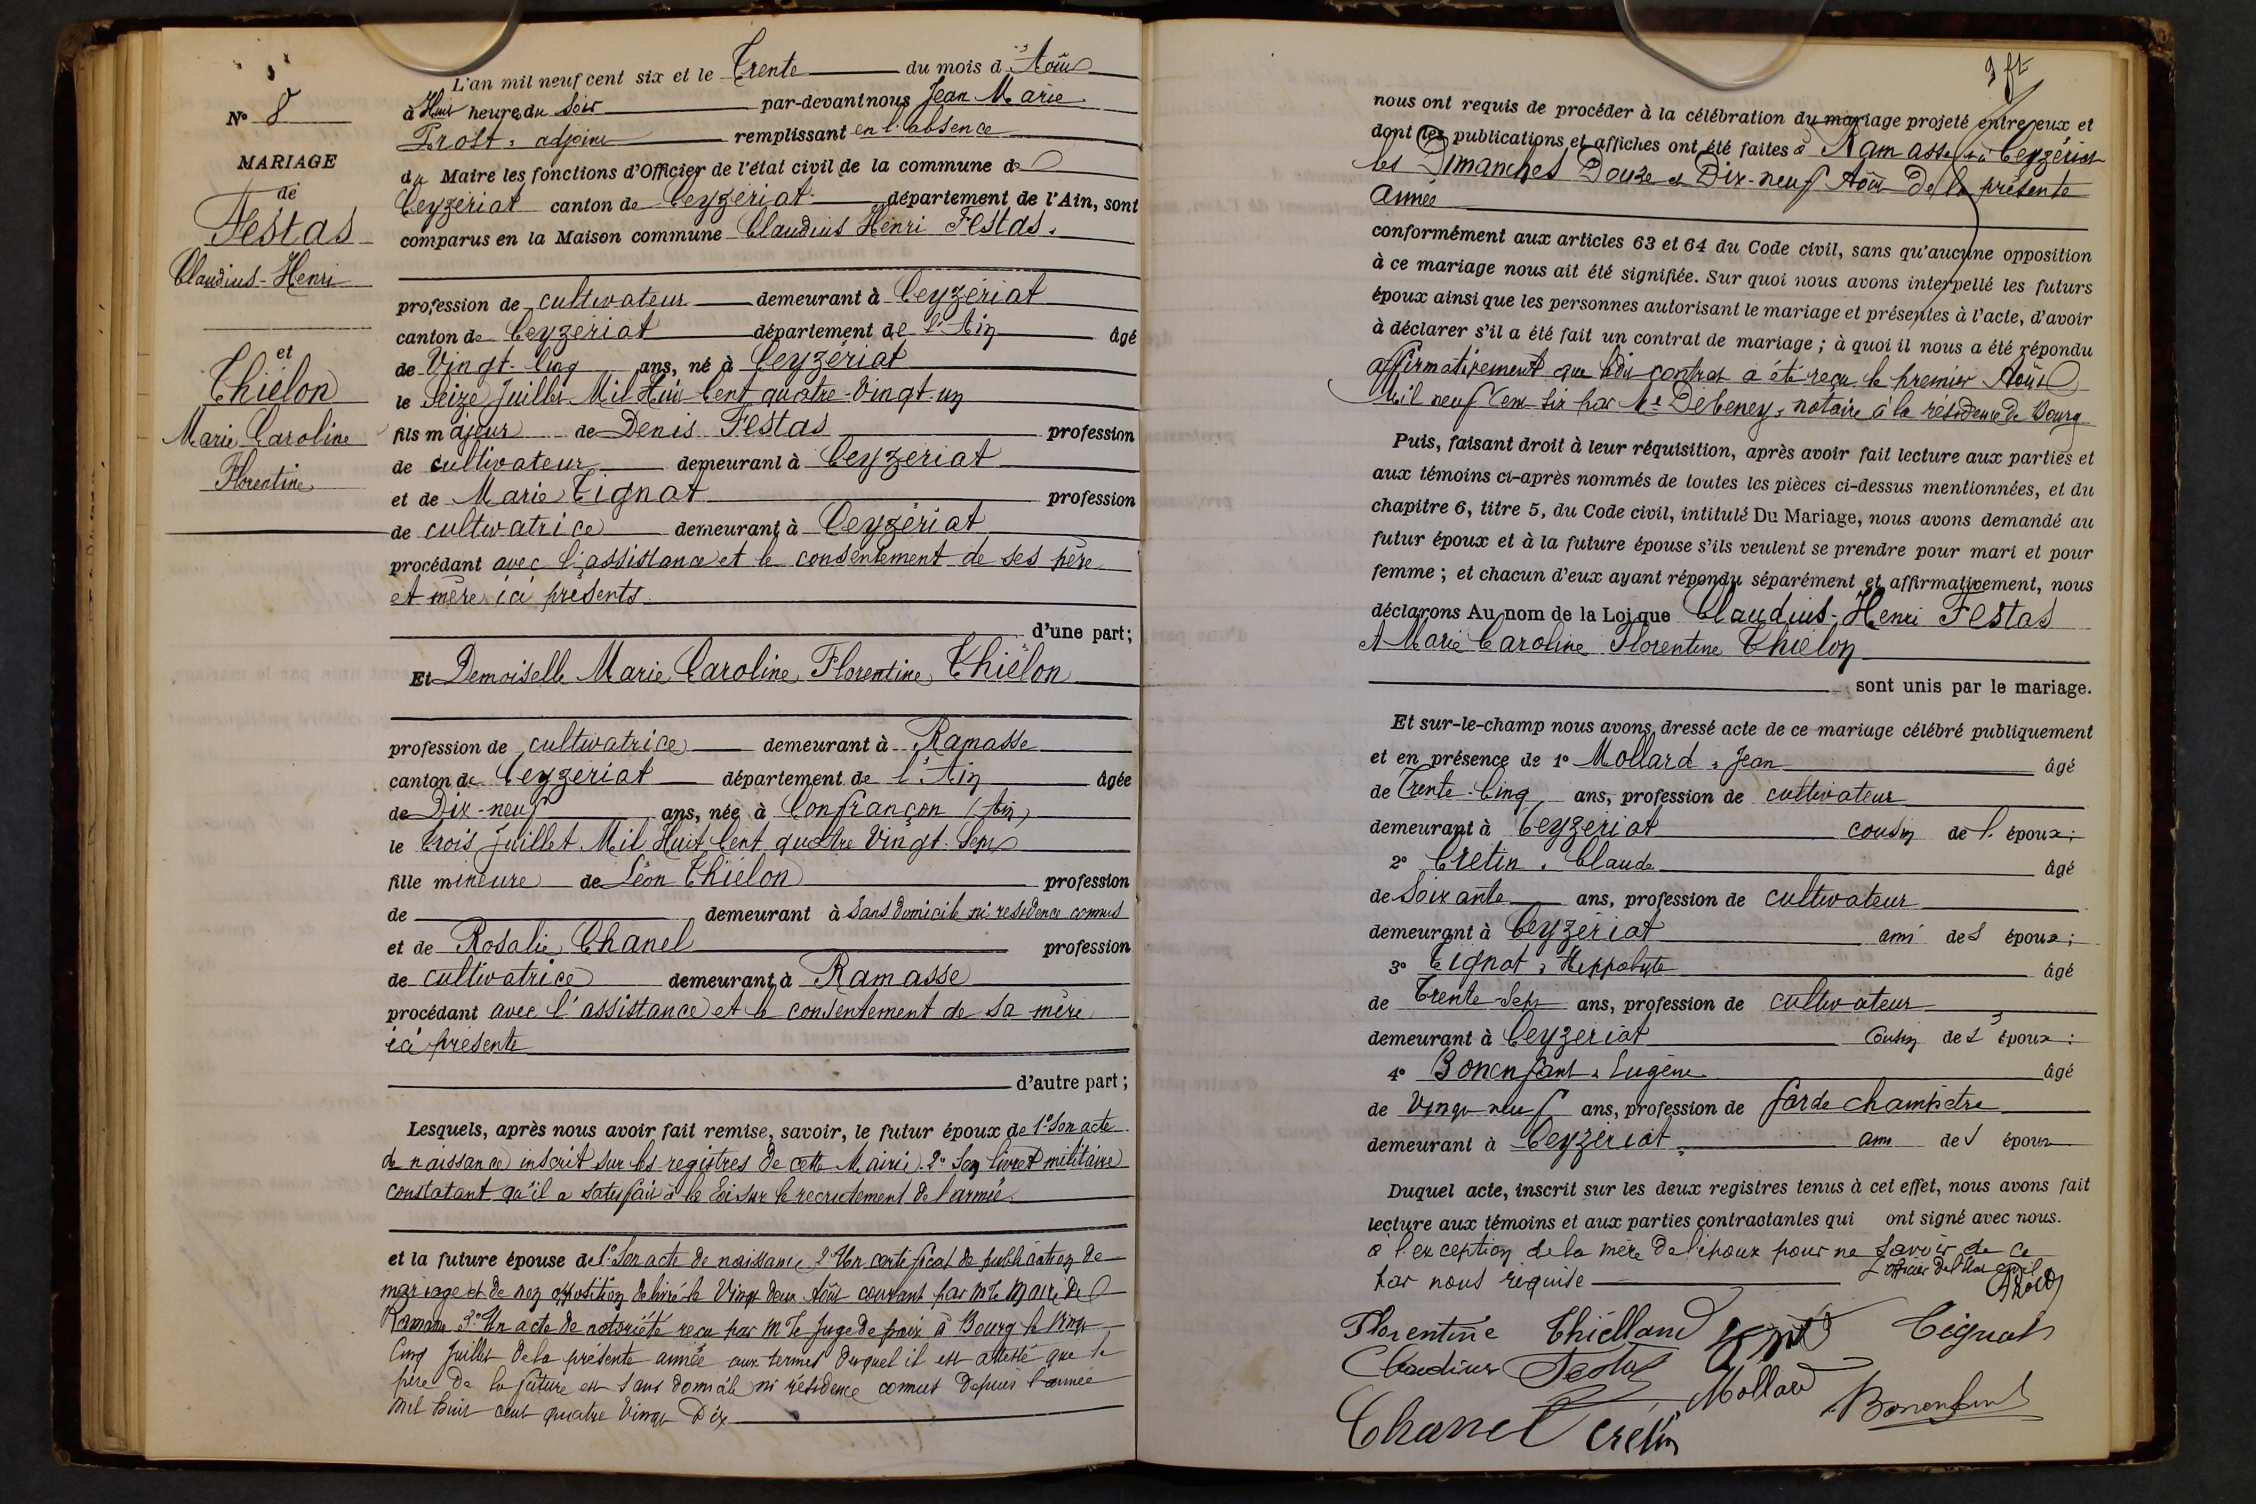 N° 8
MARIAGE
de
Festas
Claudius-Henri
et
Thiélon
Marie Caroline
Florentine
L'an mil neuf cent six et le Trente du mois d'Août
à Huit heure du Soir par-devant nous Jean Marie
Prost, adjoint remplissant en l'absence
du Maire les fonctions d'Officier de l'état civil de la commune de
Ceyzériat canton de Ceyzériat département de l'Ain, sont
comparus en la Maison commune Claudius Henri Festas.
profession de cultivateur demeurant à Ceyzériat
canton de Ceyzériat département de l'Ain âgé
de Vingt-Cinq ans, né à Ceyzériat
le Seize Juillet Mil Huit Cent quatre-Vingt-un
fils majeur de Denis Festas profession
de cultivateur demeurant à Ceyzériat
et de Marie Tignat profession
de cultivatrice demeurant à Ceyzériat
procédant avec l'assistance et le consentement de ses père
et mère ici présents.
d'une part;
Et Demoiselle Marie Caroline Florentine Thiélon
profession de cultivatrice demeurant à Ramasse
canton de Ceyzériat département de l'Ain âgée
de Dix-neuf ans, née à Confrançon (Ain)
le Trois Juillet Mil Huit Cent quatre Vingt Sept
fille mineure de Léon Thiélon profession
de demeurant à Sans domicile ni résidence connus
et de Rosalie Chanel profession
de cultivatrice demeurant à Ramasse
procédant avec l'assistance et le consentement de sa mère
ici présente
d'autre part;
Lesquels, après nous avoir fait remise, savoir, le futur époux de 1° Son acte
de naissance inscrit sur les registres de cette Mairie. 2° Son livret militaire
constatant qu'il a satisfait à la Loi sur le recrutement de l'armée.
et la future épouse de 1° Son acte de naissance 2° Un certificat de publication de
mariage et de non opposition délivré le Vingt deux Août courant par Mr le Maire de
Ramasse 3° Un acte de notoriété reçu par Mr le Juge de paix à Bourg le Vingt
Cinq Juillet de la présente année aux termes duquel il est attesté que le
père de la future est sans domicile ni résidence connus depuis l'année
mil huit cent quatre Vingt Dix
nous ont requis de procéder à la célébration du mariage projeté entre eux et
dont les publications et affiches ont été faites à Ramasse et à Ceyzériat
les Dimanches Douze et Dix-neuf Août de la présente
Année
conformément aux articles 63 et 64 du Code civil, sans qu'aucune opposition
à ce mariage nous ait été signifiée. Sur quoi nous avons interpellé les futurs
époux ainsi que les personnes autorisant le mariage et présentes à l'acte, d'avoir
à déclarer s'il a été fait un contrat de mariage; à quoi il nous a été répondu
affirmativement que ledit contrat a été reçu le premier Août
Mil neuf Cent Six par Me Debeney, notaire à la résidence de Bourg
Puis, faisant droit à leur réquisition, après avoir fait lecture aux parties et
aux témoins ci-après nommés de toutes les pièces ci-dessus mentionnées, et du
chapitre 6, titre 5, du Code civil, intitulé Du Mariage, nous avons demandé au
futur époux et à la future épouse s'ils veulent se prendre pour mari et pour
femme; et chacun d'eux ayant répondu séparément et affirmativement, nous
déclarons Au nom de la Loi que Claudius-Henri Festas
et Marie Caroline Florentine Thiélon
sont unis par le mariage.
Et sur-le-champ nous avons dressé acte de ce mariage célébré publiquement
et en présence de 1° Mollard, Jean âgé
de Trente-Cinq ans, profession de cultivateur
demeurant à Ceyzériat cousin de l'époux;
2° Cretin, Claude âgé
de Soixante ans, profession de cultivateur
demeurant à Ceyzériat ami des époux;
3° Tignat, Hippolyte âgé
de Trente-Sept ans, profession de cultivateur
demeurant à Ceyzériat Cousin de l'époux;
4° Bonenfant, Eugène âgé
de Vingt neuf ans, profession de Garde champêtre
demeurant à Ceyzériat, ami des époux
Duquel acte, inscrit sur les deux registres tenus à cet effet, nous avons fait
lecture aux témoins et aux parties contractantes qui ont signé avec nous.
à l'exception de la mère de l'époux pour ne savoir de ce
par nous requise L'officier de l'état civil
Prost
Florentine Thielland Tignat
Claudius Festas
Mollard Bonenfant
Chanel Cretin